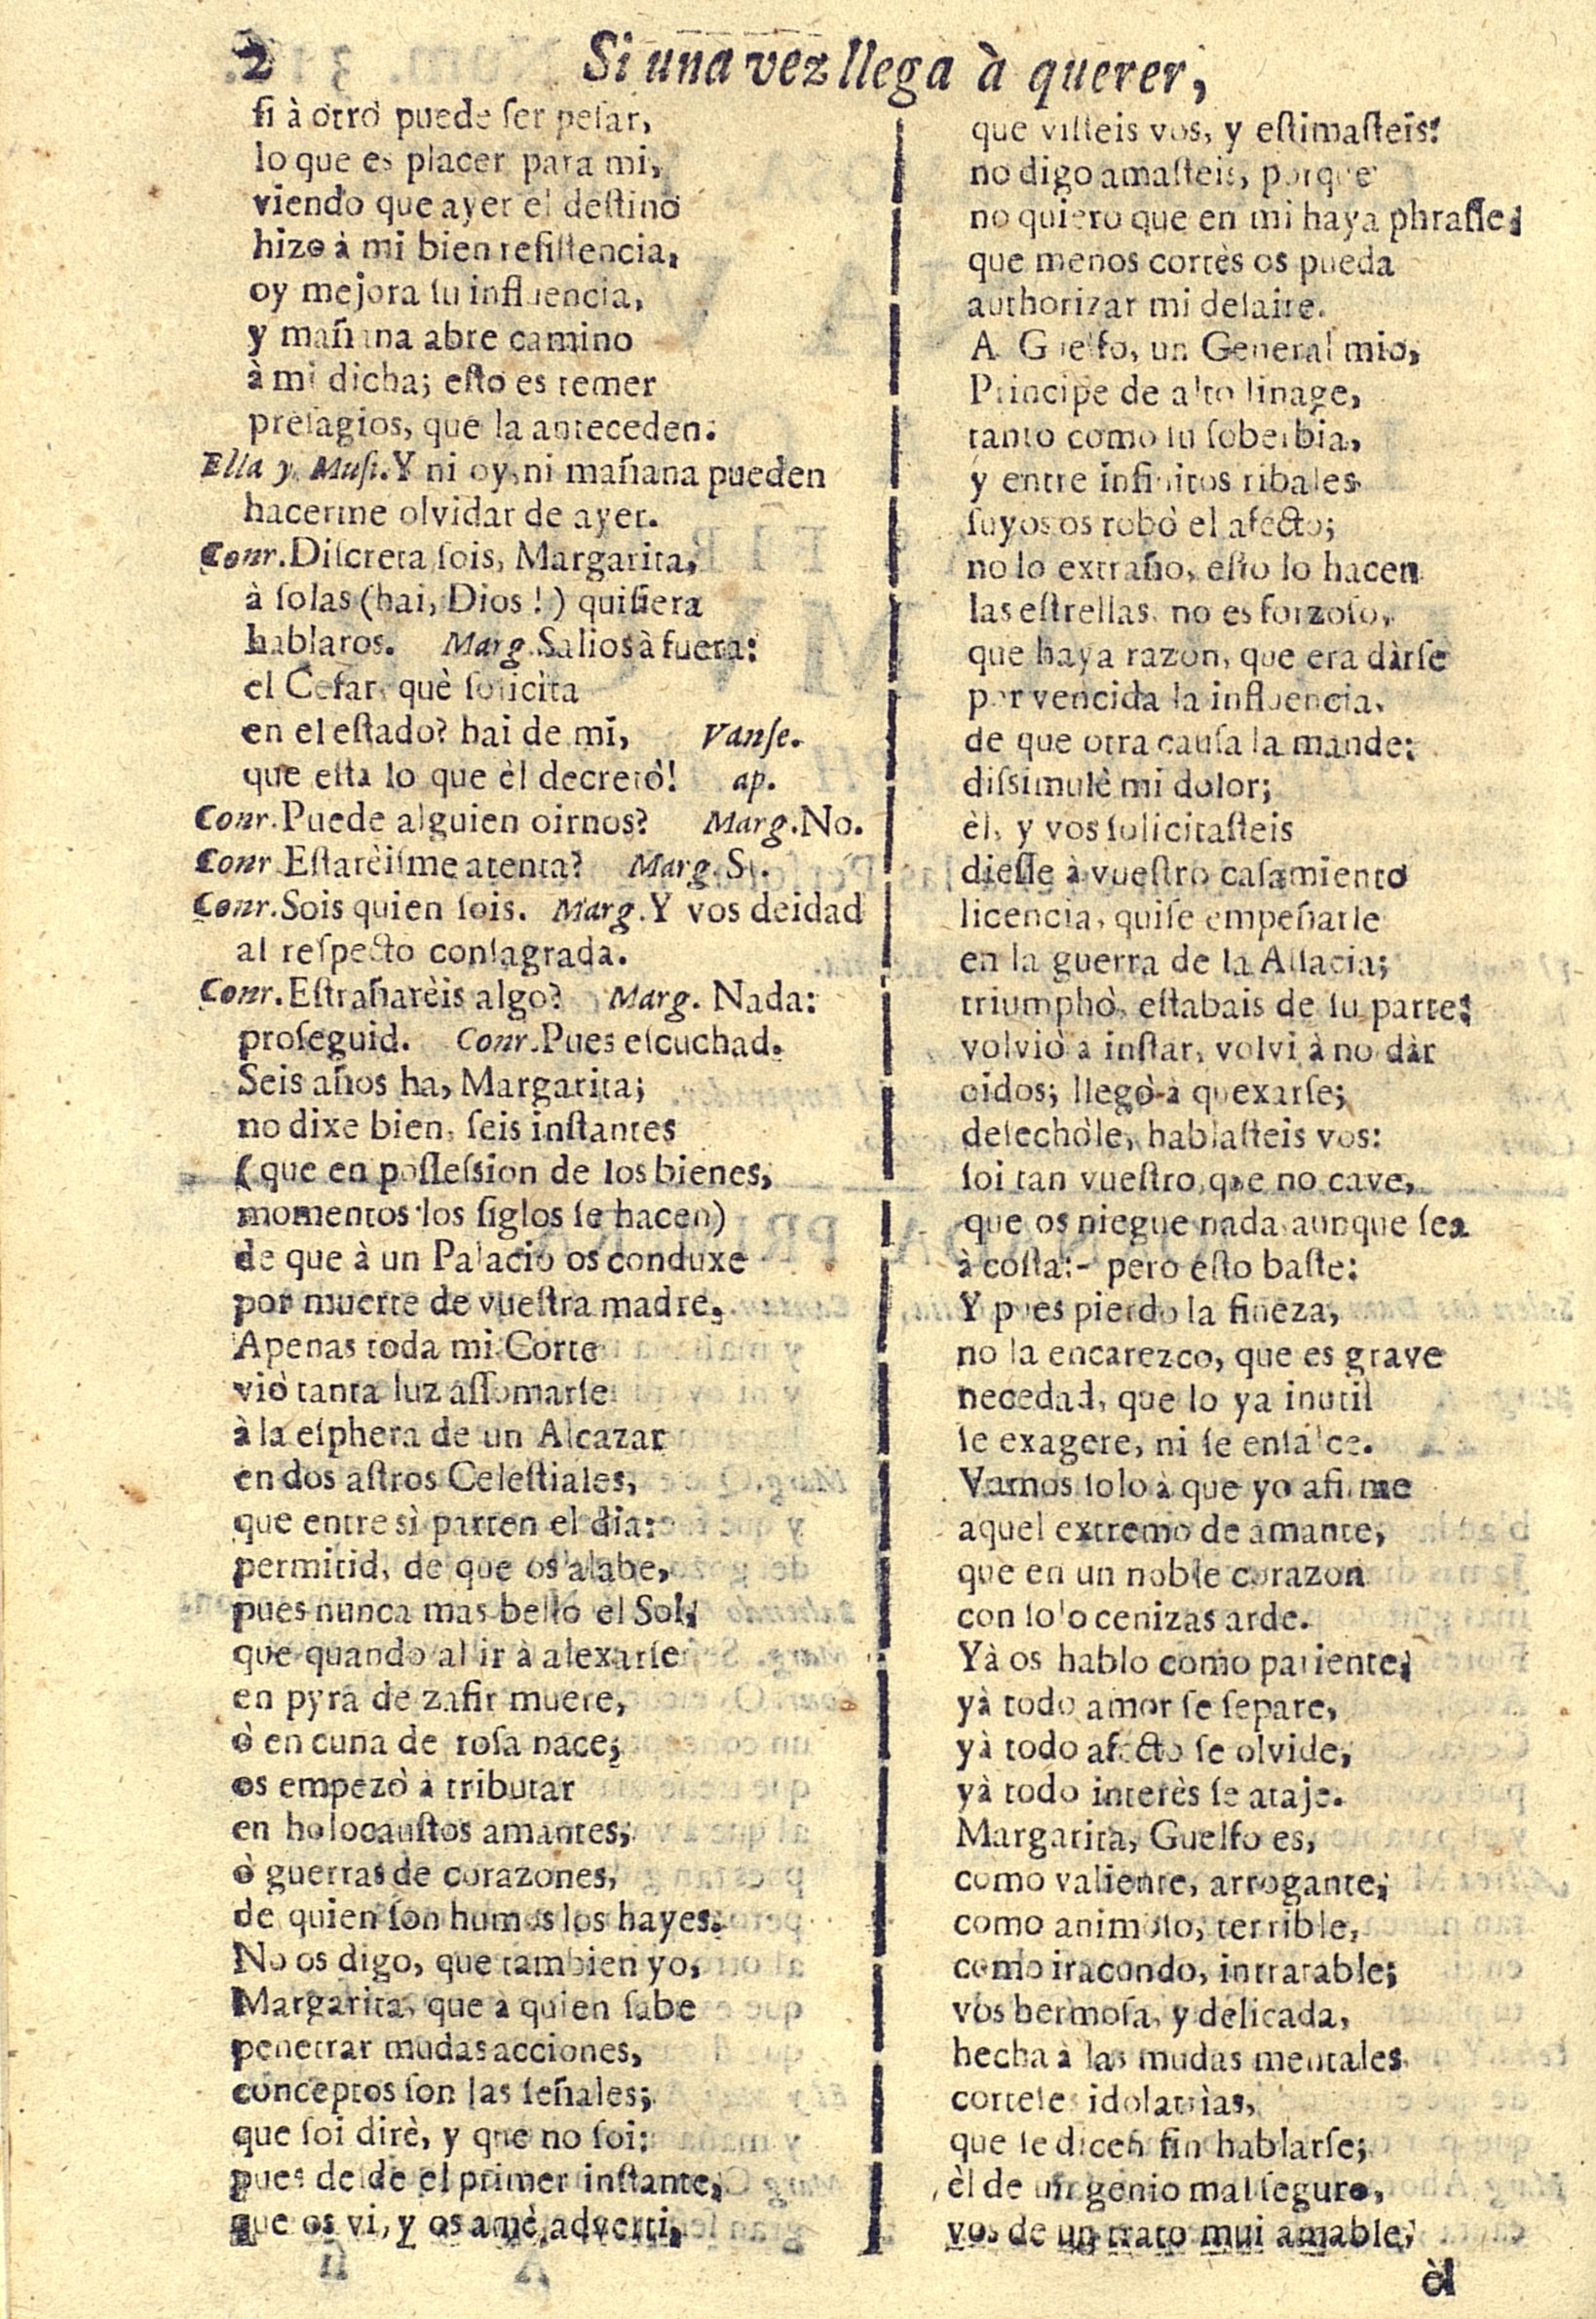 2
Si una vez llega à querer,
ſi à otro puede ſer peſar,
lo que es placer para mi,
viendo que ayer el deſtino
hizo à mi bien reſiſtencia,
oy mejora ſu influencia,
y mañana abre camino
à mi dicha; eſto es temer
preſagios, que la anteceden.
Ella y Muſi. Y ni oy, ni mañana pueden
hacerme olvidar de ayer.
Conr. Diſcreta ſois, Margarita,
à ſolas (hai, Dios!) quiſiera
hablaros. Marg. Salios à fuera:
el Ceſar, què ſolicìta
en el eſtado? hai de mi, Vanſe.
que eſta lo que èl decretò! ap.
Conr. Puede alguien oirnos? Marg. No.
Conr. Eſtarèiſme atenta? Marg. Si.
Conr. Sois quien ſois. Marg. Y vos deidad
al reſpecto conſagrada.
Conr. Eſtrañarèis algo? Marg. Nada:
proſeguid. Conr. Pues eſcuchad.
Seis años ha, Margarita;
no dixe bien, ſeis inſtantes
(que en poſſeſsion de los bienes,
momentos los ſiglos ſe hacen)
de que à un Palacio os conduxe
por muerte de vueſtra madre.
Apenas toda mi Corte
viò tanta luz aſſomarſe
à la eſphera de un Alcazar
en dos aſtros Celeſtiales,
que entre sì parten el dia:
permitid, de que os alabe,
pues nunca mas bello el Sol,
que quando al ir à alexarſe
en pyra de zafir muere,
ò en cuna de roſa nace;
os empezò à tributar
en holocauſtos amantes,
ò guerras de corazones,
de quien ſon humos los hayes.
No os digo, que tambien yo,
Margarita, que à quien ſabe
penetrar mudas acciones,
conceptos ſon las ſeñales;
que ſoi dirè, y que no ſoi:
pues deſde el primer inſtante,
que os vi, y os amè, adverti,
que viſteis vos, y eſtimaſteis:
no digo amaſteis, porque
no quiero que en mi haya phraſſe,
que menos cortès os pueda
authorizar mi deſaire.
A Guelfo, un General mio,
Principe de alto linage,
tanto como ſu ſoberbia,
y entre infinitos ribales
ſuyos os robò el afecto;
no lo extraño, eſto lo hacen
las eſtrellas, no es forzoſo,
que haya razon, que era dàrſe
por vencida la influencia,
de que otra cauſa la mande:
diſsimulè mi dolor;
èl, y vos ſolicitaſteis
dieſſe à vueſtro caſamiento
licencia, quiſe empeñarle
en la guerra de la Alſacia;
triumphò, eſtabais de ſu parte:
volviò à inſtar, volvi à no dàr
oidos; llegò à quexarſe;
deſechòle, hablaſteis vos:
ſoi tan vueſtro, que no cave,
que os niegue nada aunque ſea
à coſta:- pero eſto baſte:
Y pues pierdo la fineza,
no la encarezco, que es grave
necedad, que lo ya inutil
ſe exagere, ni ſe enſalce.
Vamos ſolo à que yo afirme
aquel extremo de amante,
que en un noble corazon
con ſolo cenizas arde.
Yà os hablo como pariente,
yà todo amor ſe ſepare,
yà todo afecto ſe olvide,
yà todo interès ſe ataje.
Margarita, Guelfo es,
como valiente, arrogante,
como animoſo, terrible,
como iracundo, intratable;
vos hermoſa, y delicada,
hecha à las mudas mentales
corteſes idolatrìas,
que ſe dicen ſin hablarſe;
èl de un genio mal ſeguro,
vos de un trato mui amable,
èl